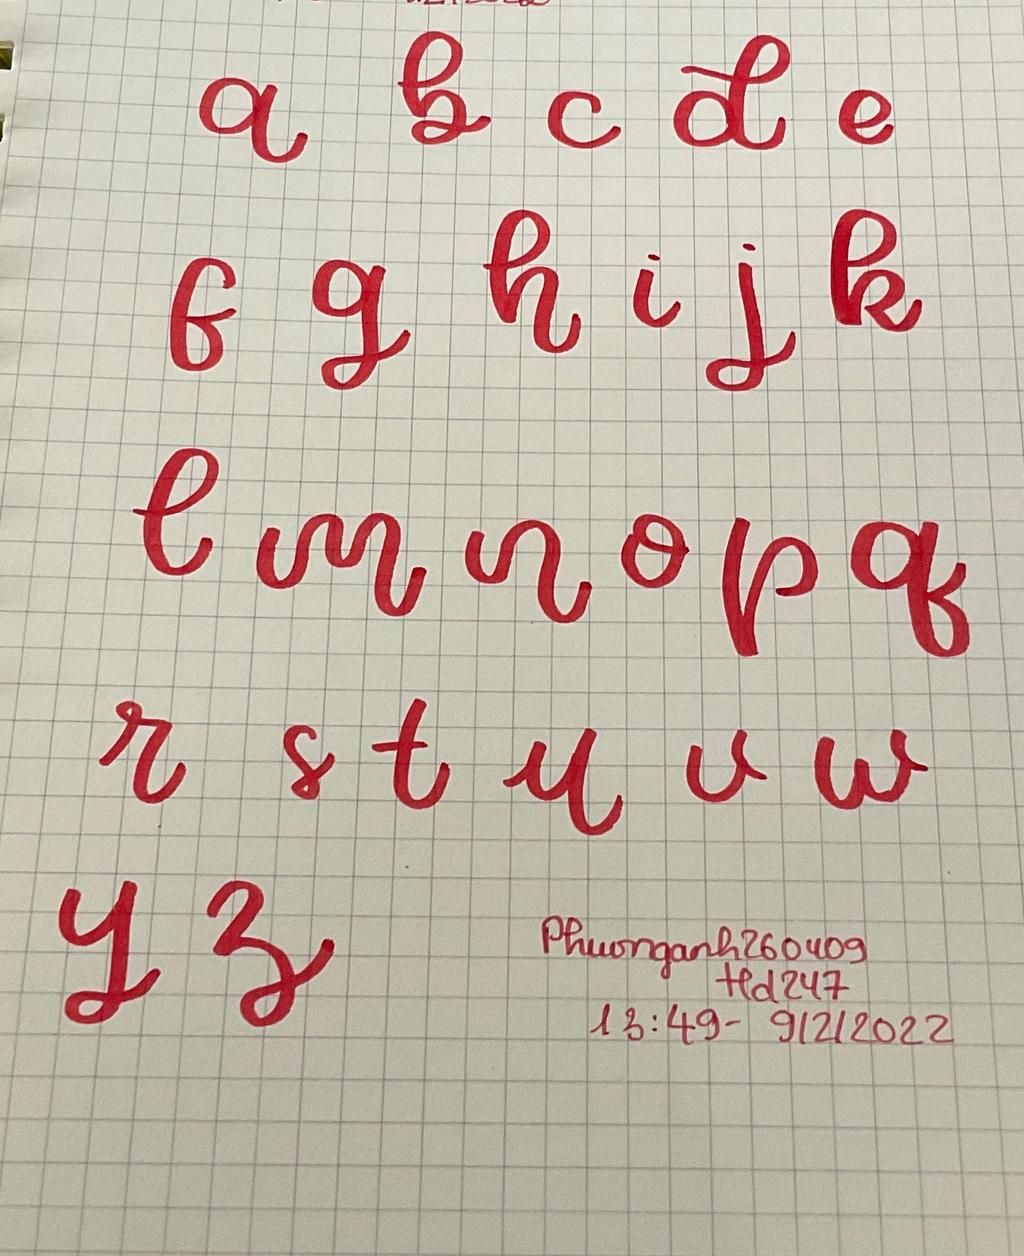 a b c d e
f g h i j k
l m n o p q
r s t u v w
y z
Phuonganh260409
Hd247
13:49- 9/2/2022